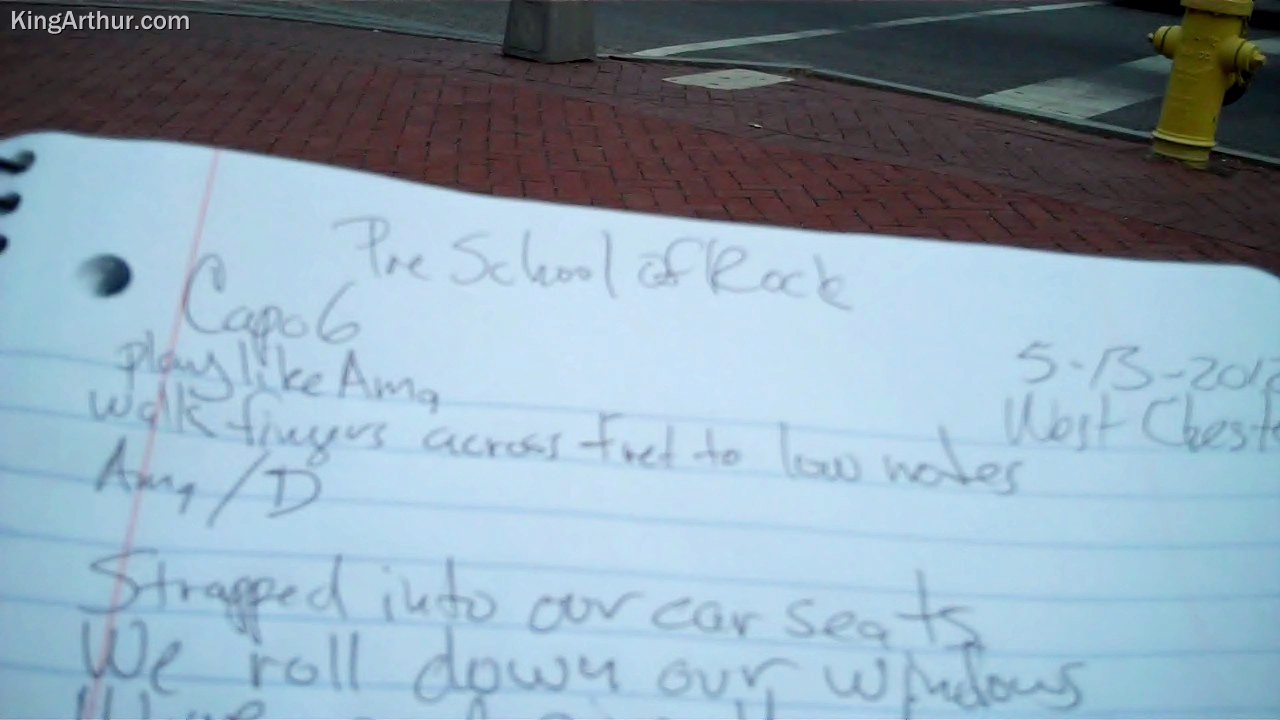 KingArthur.com
Pre School of Rock
Capo 6
play like Am9
5-13-201
walk fingers across Fret to low notes
West Chest
Am9/D
Strapped into our car seats
We roll down our windows